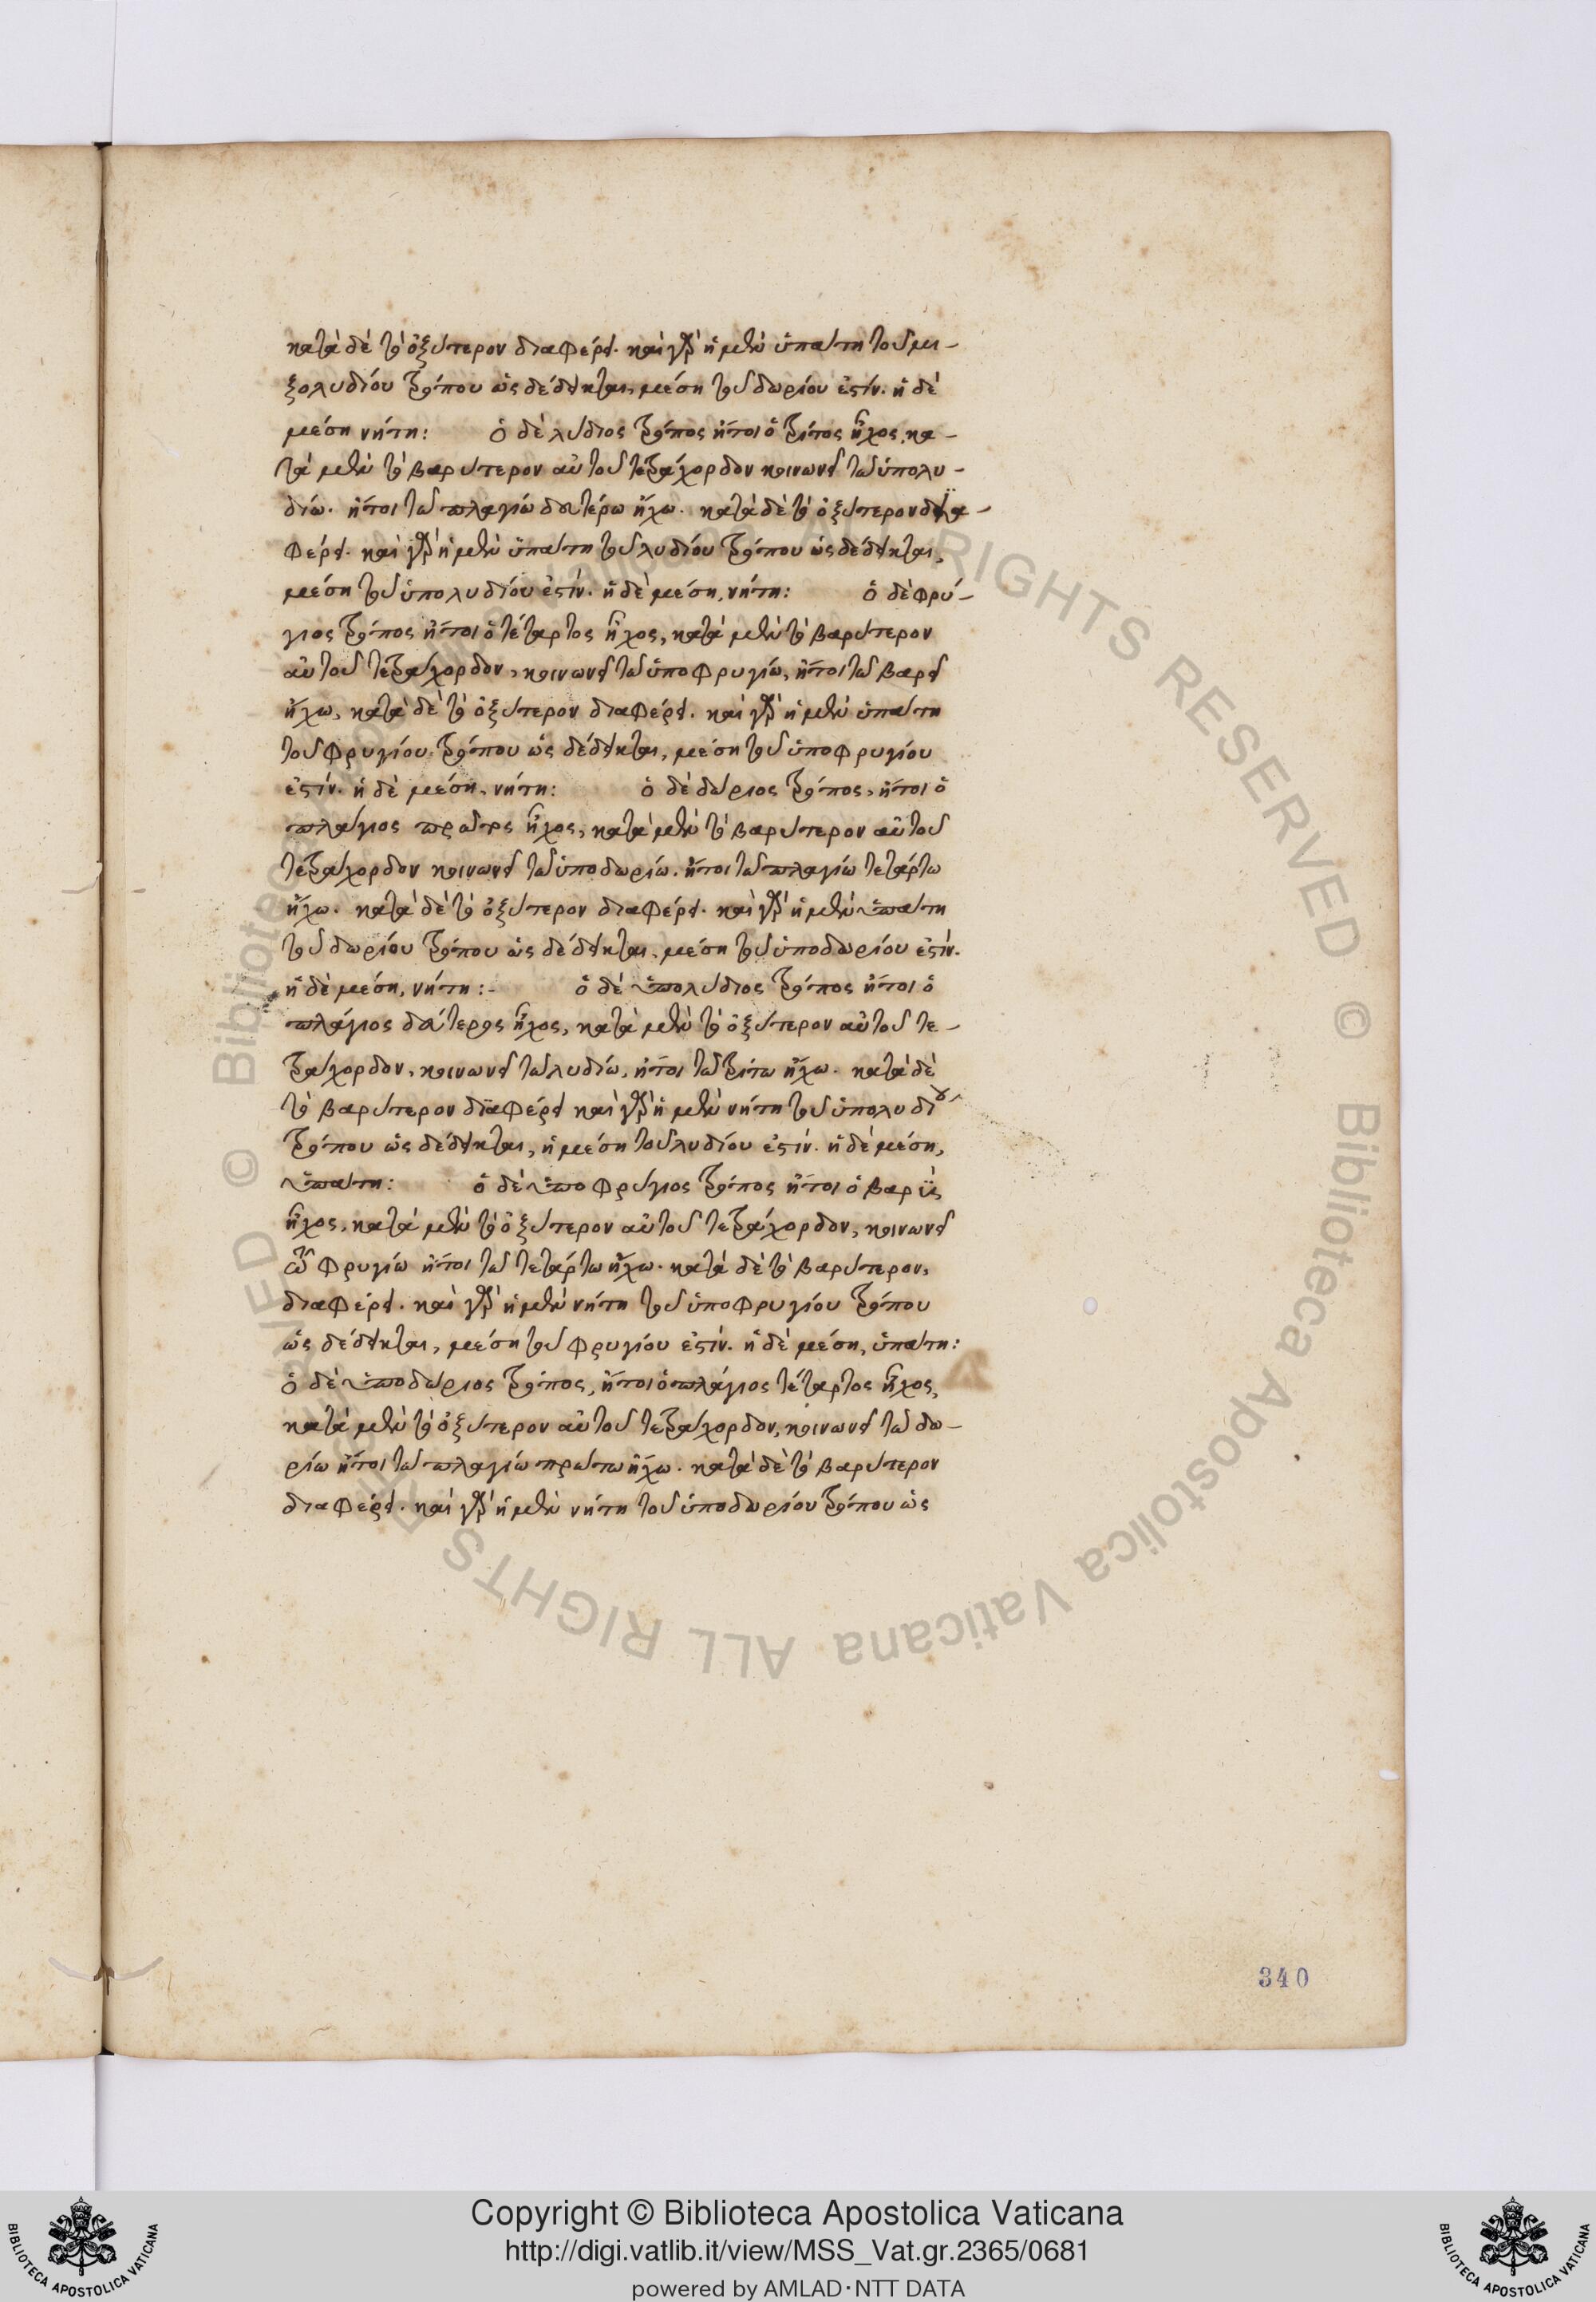 κατὰ δὲ τὸ ὀξύτερον διαφέρει. καὶ γὰρ ἡ μὲν ὑπάτη τοῦ μι-
ξολυδίου τρόπου ὡς δέδεικται, μέση τοῦ δωρίου ἐστίν. ἡ δὲ
μέση νήτη: ὁ δὲ λύδιος τρόπος ἤτοι ὁ τρίτος ἦχος, κα-
τὰ μὲν τὸ βαρύτερον αὐτοῦ τετράχορδον κοινωνεῖ τῶ ὑπολυ-
δίω. ἤτοι τῶ πλαγίω δευτέρω ἤχω. κατὰ δὲ τὸ ὀξύτερον δϊα-
φέρει. καὶ γὰρ ἡ μὲν ὑπάτη τοῦ λυδίου τρόπου ὡς δέδεικται,
μέση τοῦ ὑπολυδίου ἐστίν. ἡ δὲ μέση, νήτη: ὁ δὲ φρύ-
γιος τρόπος ἤτοι ὁ τέταρτος ἦχος, κατὰ μὲν τὸ βαρύτερον
αὐτοῦ τετράχορδον, κοινωνεῖ τῶ ὑποφρυγίω, ἤτοι τῶ βαρεῖ
ἤχω, κατὰ δὲ τὸ ὀξύτερον διαφέρει. καὶ γὰρ ἡ μὲν ὑπάτη
τοῦ φρυγίου τρόπου ὡς δέδεικται, μέση τοῦ ὑποφρυγίου
ἐστίν. ἡ δὲ μέση, νήτη: ὁ δὲ δώριος τρόπος, ἤτοι ὁ
πλάγιος πρῶτος ἦχος, κατὰ μὲν τὸ βαρύτερον αὐτοῦ
τετράχορδον κοινωνεῖ τῶ ὑποδωρίω. ἤτοι τῶ πλαγίω τετάρτω
ἤχω. κατὰ δὲ τὸ ὀξύτερον διαφέρει. καὶ γὰρ ἡ μὲν ὑπάτη
τοῦ δωρίου τρόπου ὡς δέδεικται, μέση τοῦ ὑποδωρίου ἐστίν.
ἡ δὲ μέση, νήτη:- ὁ δὲ ὑπολύδιος τρόπος ἤτοι ὁ
πλάγιος δεύτερος ἦχος, κατὰ μὲν τὸ ὀξύτερον αὐτοῦ τε-
τράχορδον, κοινωνεῖ τῶ λυδίω, ἤτοι τῶ τρίτω ἤχω. κατὰ δὲ
τὸ βαρύτερον δϊαφέρει καὶ γὰρ ἡ μὲν νήτη τοῦ ὑπολυδίου
τρόπου ὡς δέδεικται, ἡ μέση τοῦ λυδίου ἐστίν. ἡ δὲ μέση,
ὑπάτη: ὁ δὲ ὑποφρύγιος τρόπος ἤτοι ὁ βαρὺς
ἦχος, κατὰ μὲν τὸ ὀξύτερον αὐτοῦ τετράχορδον, κοινωνεῖ
τῶ φρυγίω ἤτοι τῶ τετάρτω ἤχω. κατὰ δὲ τὸ βαρύτερον,
διαφέρει. καὶ γὰρ ἡ μὲν νήτη τοῦ ὑποφρυγίου τρόπου
ὡς δέδεικται, μέση τοῦ φρυγίου ἐστίν. ἡ δὲ μέση, ὑπάτη:
ὁ δὲ ὑποδώριος τρόπος, ἤτοι ὁ πλάγιος τέταρτος ἦχος,
κατὰ μὲν τὸ ὀξύτερον αὐτοῦ τετράχορδον, κοινωνεῖ τῶ δω-
ρίω ἤτοι τῶ πλαγίω πρώτω ἤχω. κατὰ δὲ τὸ βαρύτερον
διαφέρει. καὶ γὰρ ἡ μὲν νήτη τοῦ ὑποδωρίου τρόπου ὡς
340
© Biblioteca Apostolica Vaticana ALL RIGHTS RESERVED © Biblioteca Apostolica Vaticana ALL RIGHTS RESERVED
Copyright © Biblioteca Apostolica Vaticana
http://digi.vatlib.it/view/MSS_Vat.gr.2365/0681
powered by AMLAD·NTT DATA
BIBLIOTECA APOSTOLICA VATICANA
BIBLIOTECA APOSTOLICA VATICANA